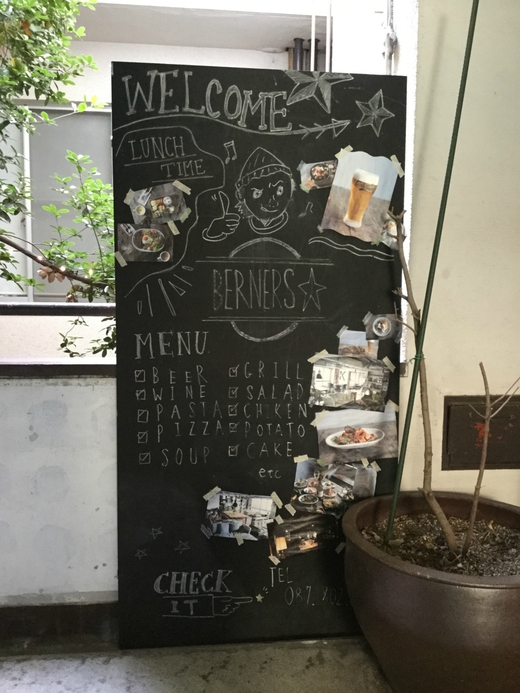 WELCOME
LUNCH
TIME
BERNERS
MENU
BEER
WINE
PASTA
PIZZA
SOUP
GRILL
SALAD
CHIKEN
POTATO
CAKE
etc
CHECK
IT
TEL
087.